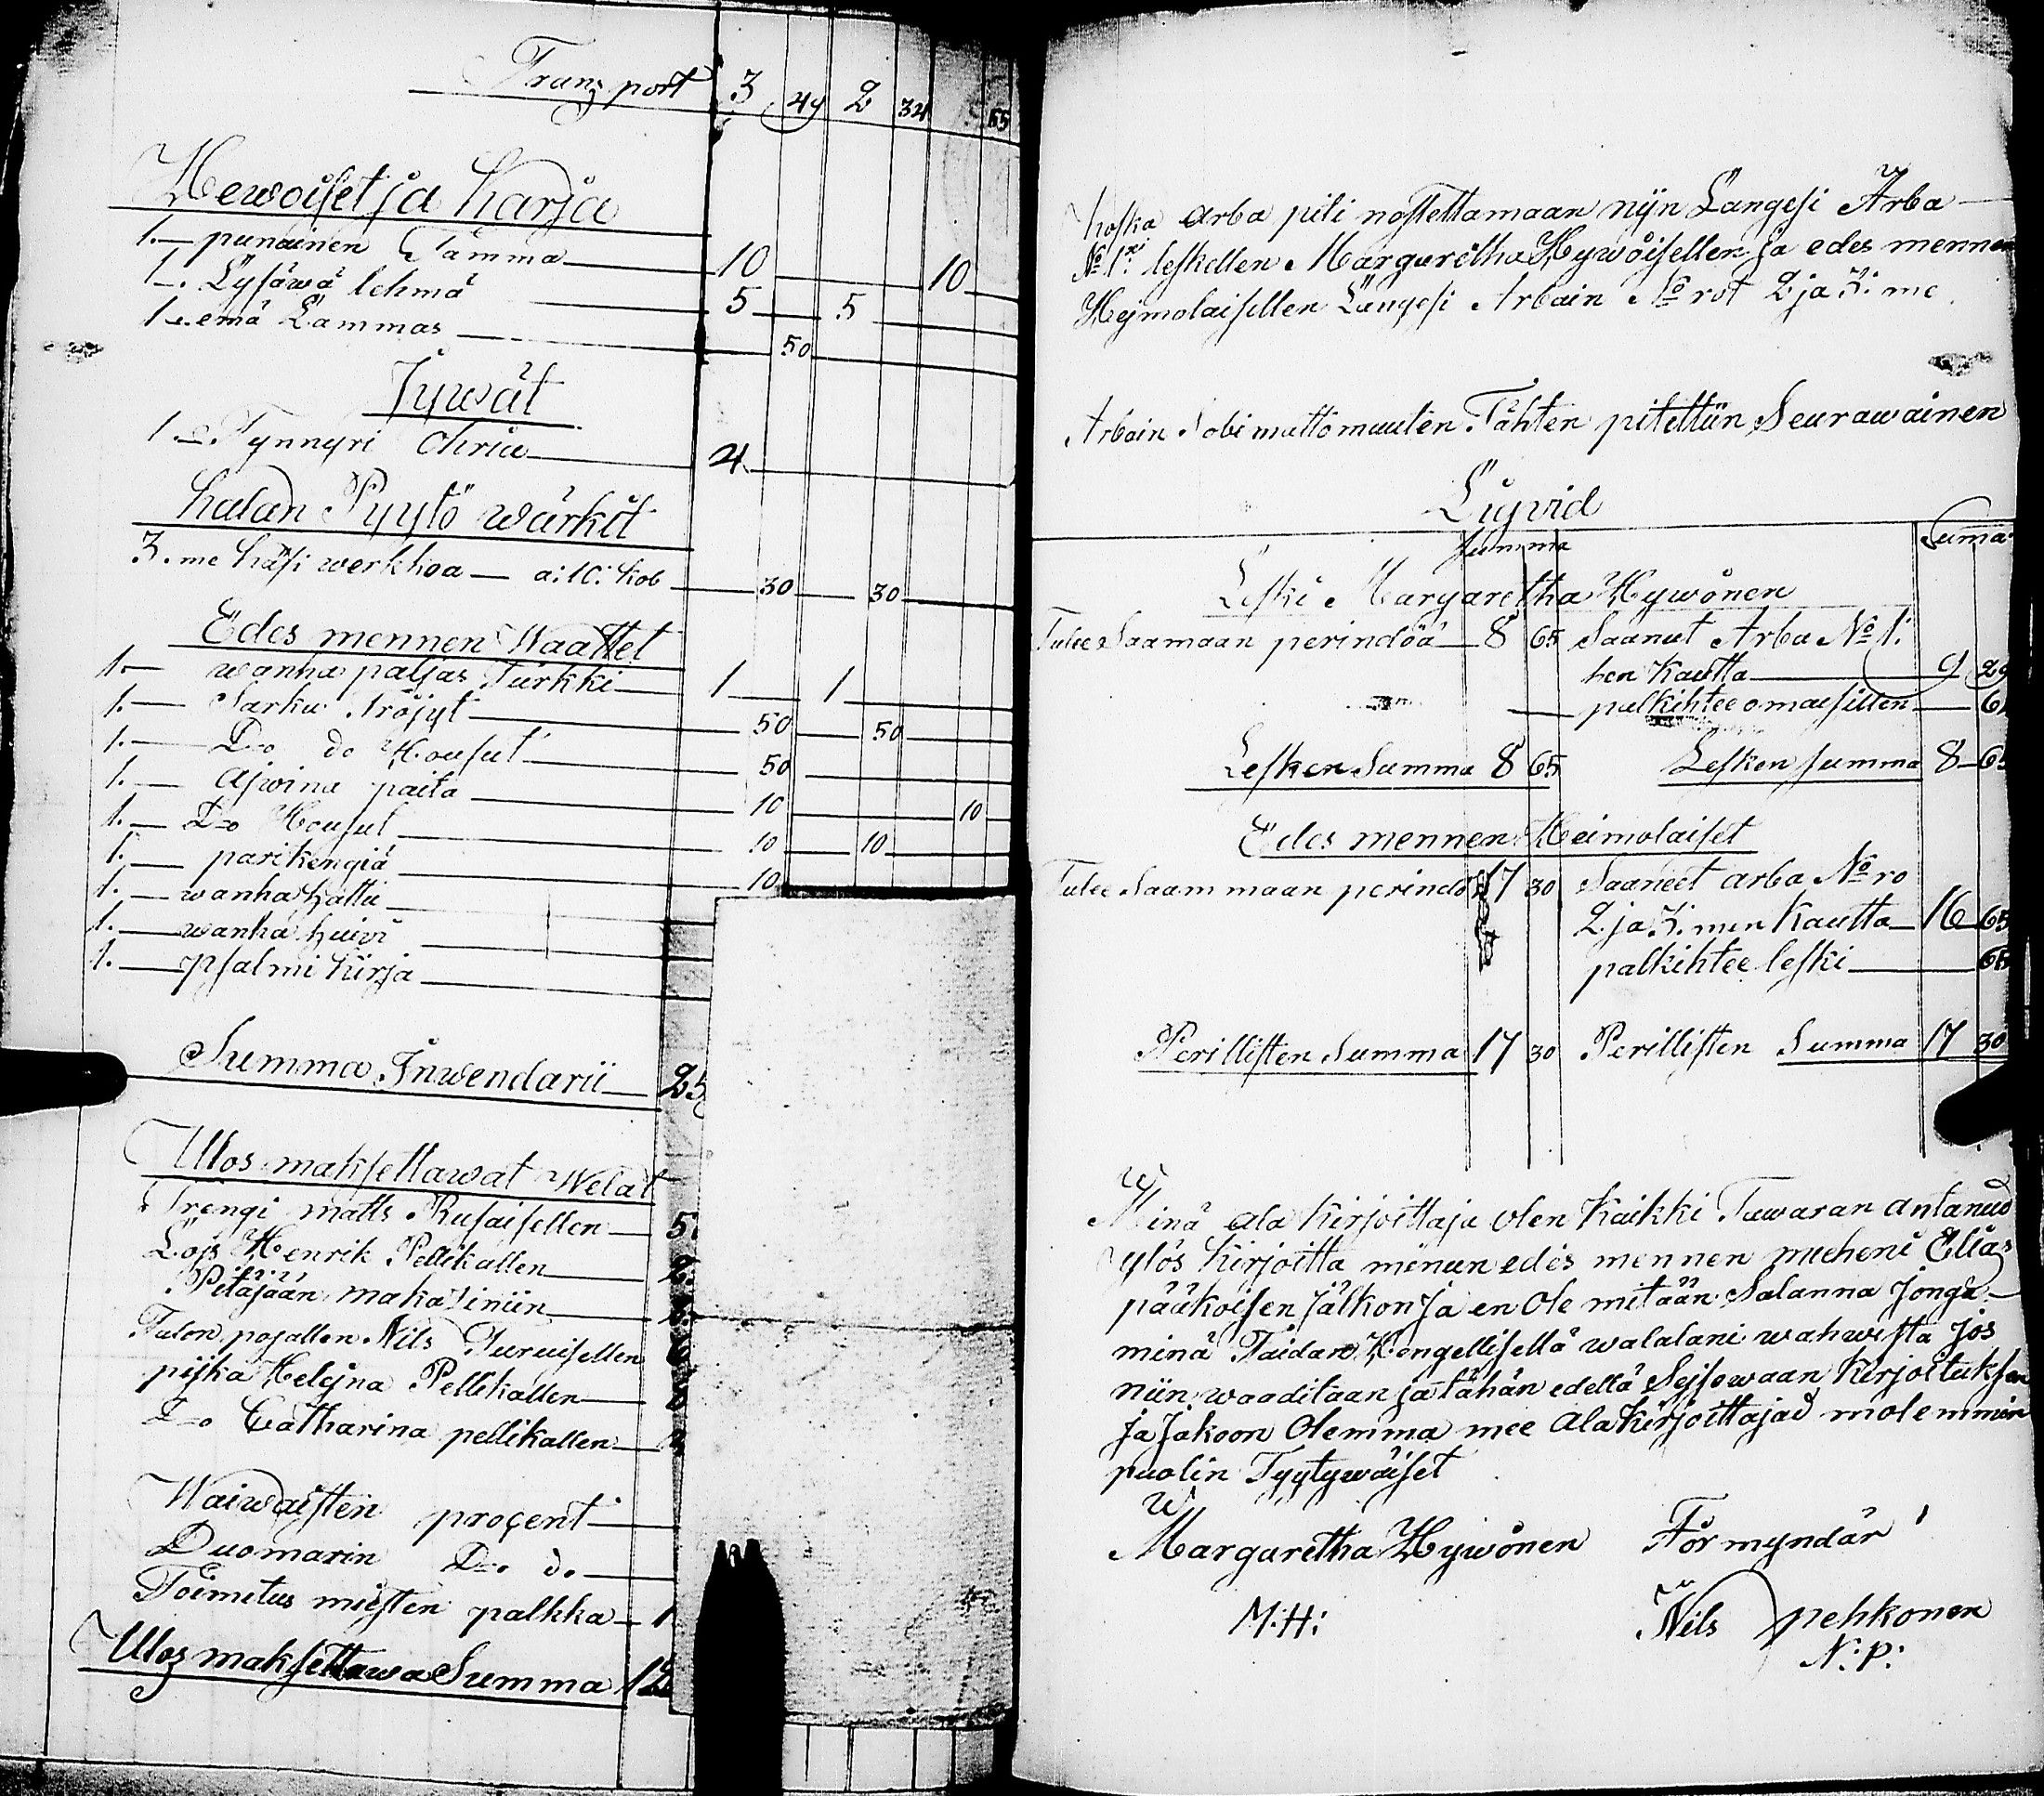 Transport 3 44 2 34 65
Hewoiset ja Karja
1.— punainen Tamma — 10 — 10
1.— Lysäwä lehmä — 5 — 5
1.— emä Lammas — 50
Jywät
1.— Tynnyri Ohria — 4
Kalan Pyytö wärkit
3.me käsi werkkoa — a: 10: Kob — 30 — 30
Edes mennen Waattet
1.— wanha paljas Turkki — 1 — 1
1.— Sarka Tröjyt — 50 — 50
1.— Do do Housut — 50
1.— Ajwina paita — 10 — 10
1.— Do Housut — 10 — 10
1.— pari kengiä — 10
1.— wanha hattu
1.— wanha huivi
1.— psalmi kirja
Summa Inwendarii — 25
Ulos maksettawat Welat
Trengi matts Rusaisellen — 5
Lojs Henrik Pellikallen
Pitäjään makasiniin
Talon pojallen Nils Turuisellen
pijka Helejna Pellikallen
Do Catharina pellikallen
Waiwaisten procent
Duomarin Do do
Toimitus miesten palkka — 1
Ulos maksettawa Summa 12
Koska arba piti nostettamaan nijn Langesi Arba
No 1 leskellen Margaretha Hywöisellen ja edes mennen
Hejmolaisellen Langesi Arbain No rot 2 ja 3: me.
Arbain Sobimattomuuten Tähten pitettiin Seurawainen
Liqvid
Summa Suma
Leski Margaretha Hywönen
Tulee Saamaan perindöä — 8 65 Saanut Arba No 1:
hen Kautta — 9 29
palkihtee omaisillen — 64
Lesken Summa 8 65 Lesken summa 8 — 65
Edes mennen Heimolaiset
Tulee Saammaan perindö 17 30 Saaneet arba No ro
2. ja 3. men Kautta — 16 65
palkihtee leski — 65
Perillisten Summa 17 30 Perillisten Summa 17 30
Minä ala kirjoittaja olen Kaikki Tawaran antanud
ylös Kirjoitta minun edes mennen mieheni Elias
pääkoisen Jälkon Ja en Ole mitään Salanna Jonga
minä Taidan Hengellisellä walalani wahwista Jos
niin waaditaan ja tähän edellä Sejsowaan Kirjoituksen
ja Jakoon Olemma mee Alakirjoittajad molemmin
puolin Tyytywäiset
Margaretha Hywönen Förmyndär
M: H: Nils pehkonen
N: P: